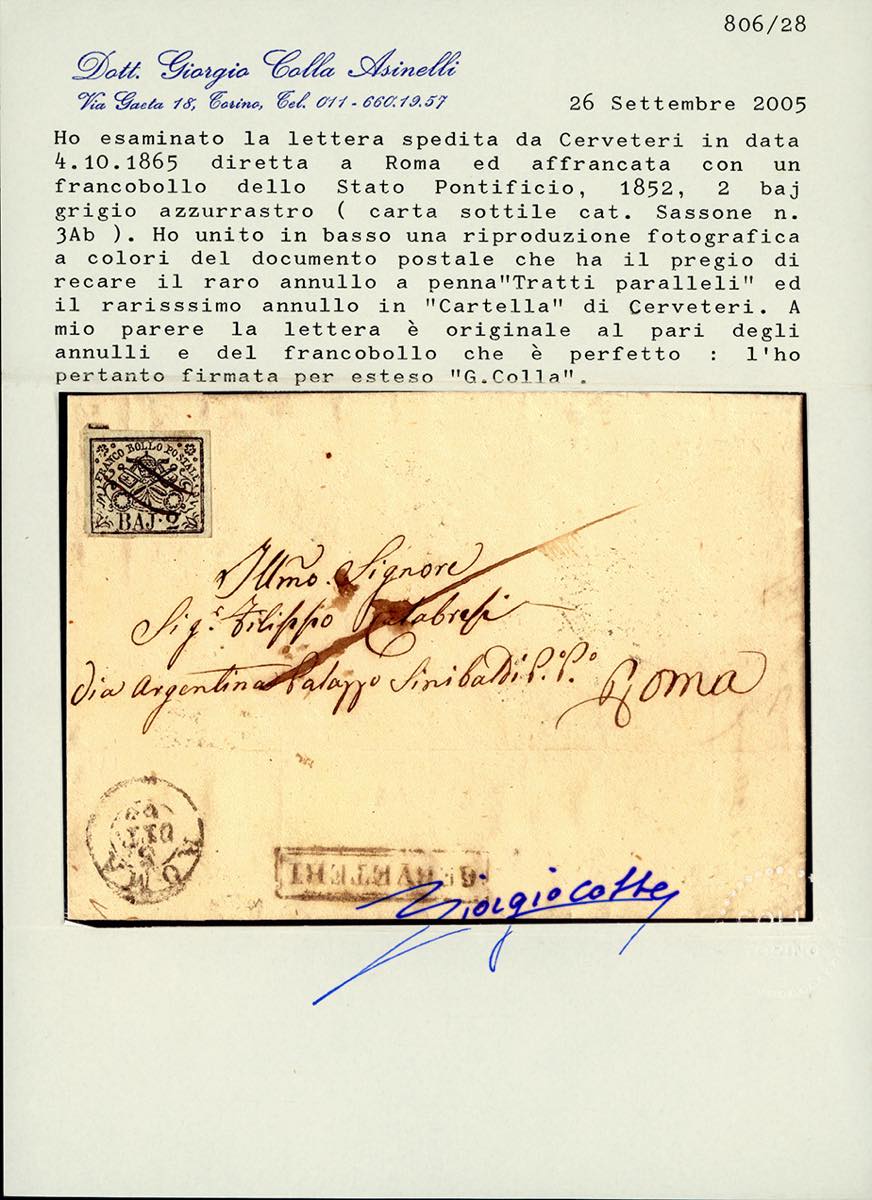 806/28
Dott. Giorgio Colla Asinelli
Via Gaeta 18, Torino, Tel. 011-660.19.57
26 Settembre 2005
Ho esaminato la lettera spedita da Cerveteri in data
4.10.1865 diretta a Roma ed affrancata con un
francobollo dello Stato Pontificio, 1852, 2 baj
grigio azzurrastro ( carta sottile cat. Sassone n.
3Ab ). Ho unito in basso una riproduzione fotografica
a colori del documento postale che ha il pregio di
recare il raro annullo a penna"Tratti paralleli" ed
il rarisssimo annullo in "Cartella" di Cerveteri. A
mio parere la lettera è originale al pari degli
annulli e del francobollo che è perfetto : l'ho
pertanto firmata per esteso "G.Colla".
FRANCO BOLLO POSTALE
BAJ·2
Illmo. Signore
Sigr. Filippo Calabresi
Via Argentina Palazzo Sinibaldi P.o P.o
Roma
ROMA
OTT
CERVETERI
Giorgio Colla